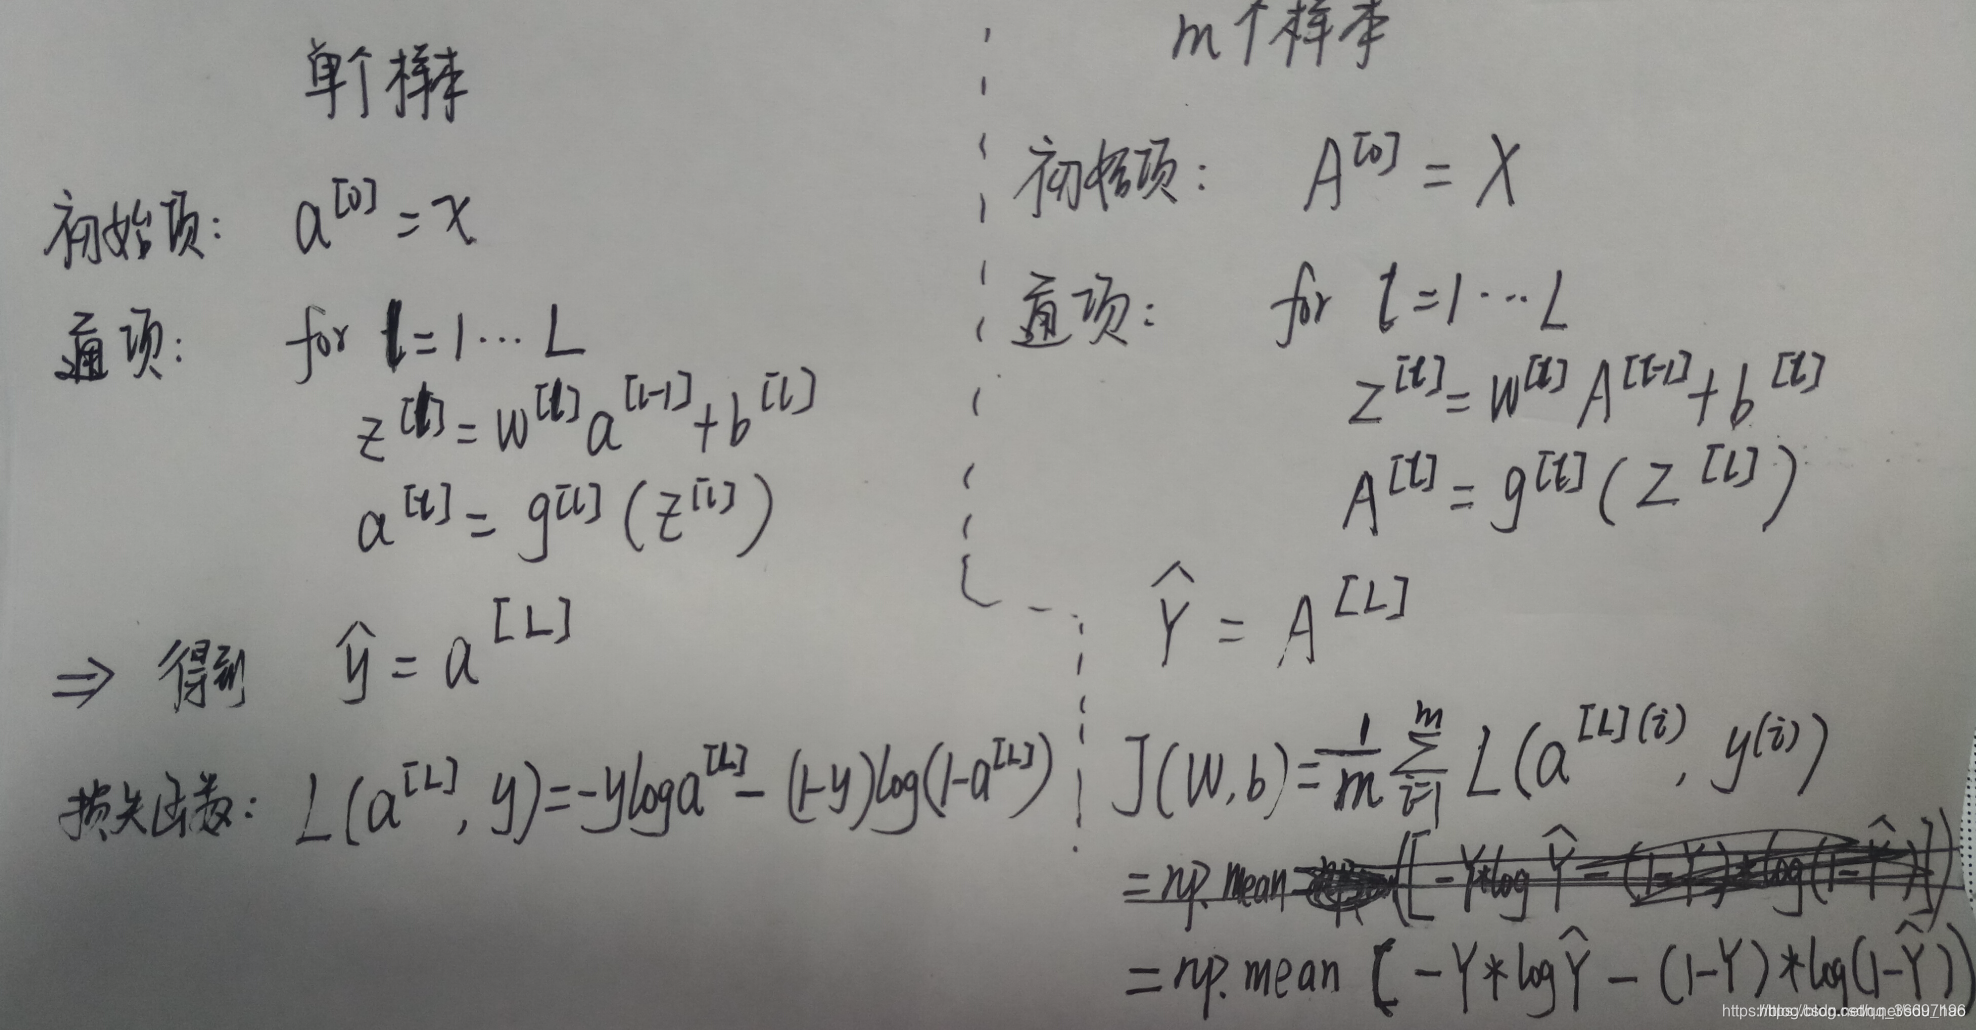 单个样本
初始项: a^[0] = x
通项: for l=1···L
z^[l] = w^[l] a^[l-1] + b^[l]
a^[l] = g^[l] (z^[l])
⇒ 得到 ŷ = a^[L]
损失函数: L(a^[L], y) = -yloga^[L] - (1-y)log(1-a^[L])
m个样本
初始项: A^[0] = X
通项: for l=1···L
Z^[l] = W^[l] A^[l-1] + b^[l]
A^[l] = g^[l] (Z^[l])
Ŷ = A^[L]
J(W,b) = 1/m ∑_{i=1}^{m} L(a^[L](i), y^(i))
= np.mean ([-Y*log Ŷ - (1-Y)*log(1-Ŷ)])
= np.mean (-Y*logŶ - (1-Y)*log(1-Ŷ))